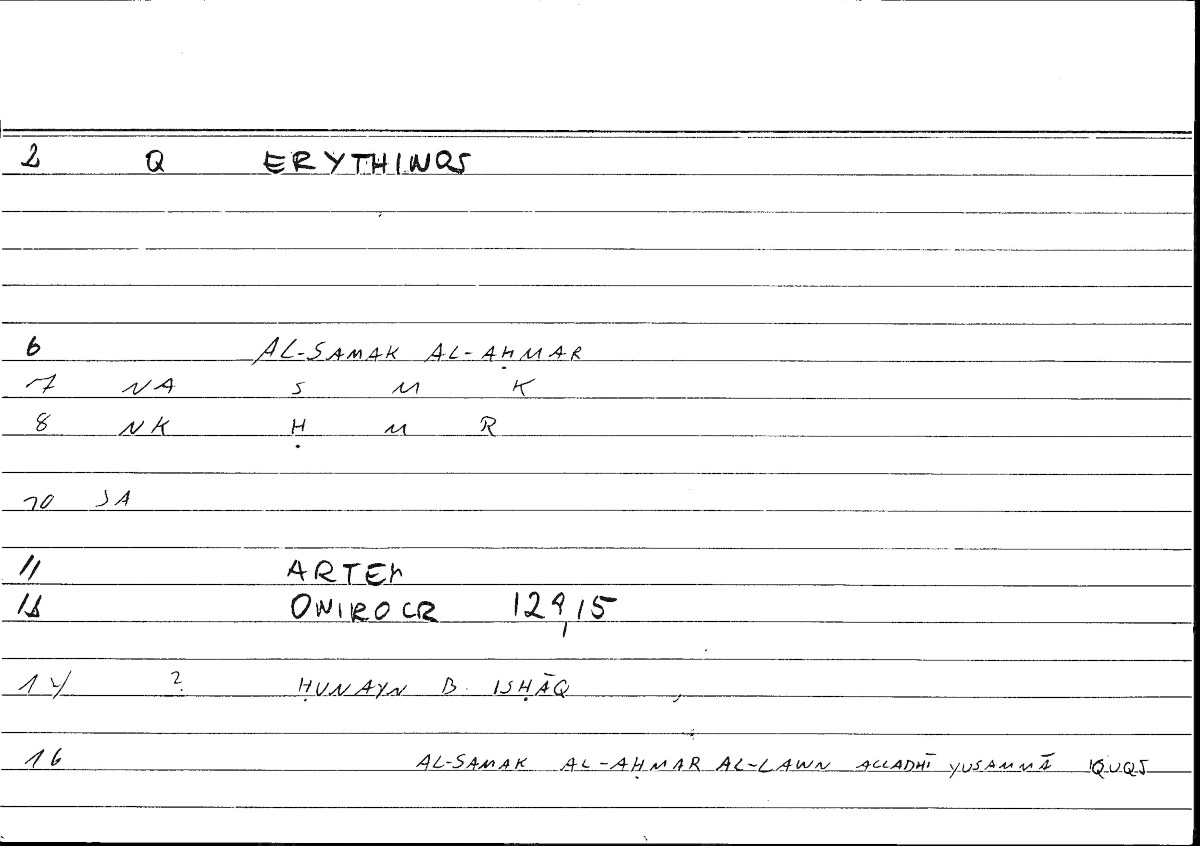 2 Q ERYTHINOS
6 AL-SAMAK AL-AḤMAR
7 NA S M K
8 NK Ḥ M R
10 SA
11 ARTEM
12 ONIROCR 129,15
14 ? ḤUNAYN B. ISḤĀQ ,
16 AL-SAMAK AL-AḤMAR AL-LAWN ALLADHĪ YUSAMMĀ